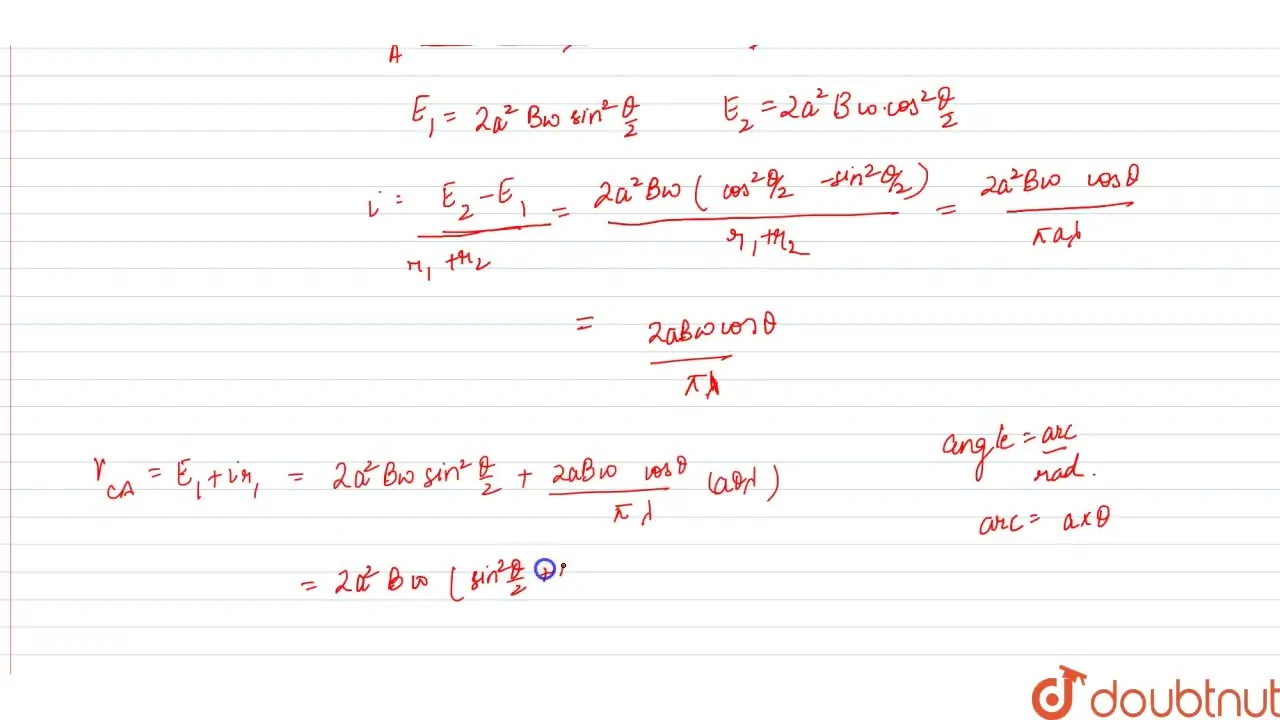 A
E₁ = 2a² Bω sin² θ/2    E₂ = 2a² Bω·cos² θ/2
i = (E₂ - E₁)/(r₁ + r₂) = 2a²Bω (cos² θ/2 - sin² θ/2)/(r₁ + r₂) = 2a²Bω cosθ/(πaλ)
= 2aBω cosθ/(πλ)
angle = arc/rad.
V_CA = E₁ + ir₁ = 2a² Bω sin² θ/2 + (2aBω cosθ/(πλ)) (aθλ)
arc = a×θ
= 2a² Bω (sin² θ/2 +
doubtnut